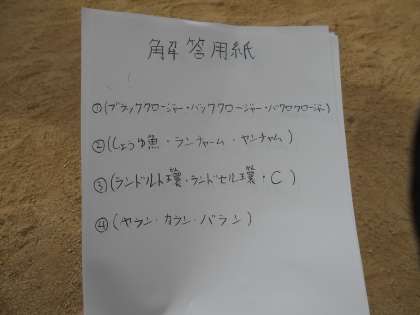 解答用紙
①(ブラッククロージャー・バッククロージャー・バクロクロージャー)
②(しょうゆ魚・ランチャーム・ヤンチャム)
③(ランドルト環・ランドセル環・C)
④(ヤラン・カラン・バラン)